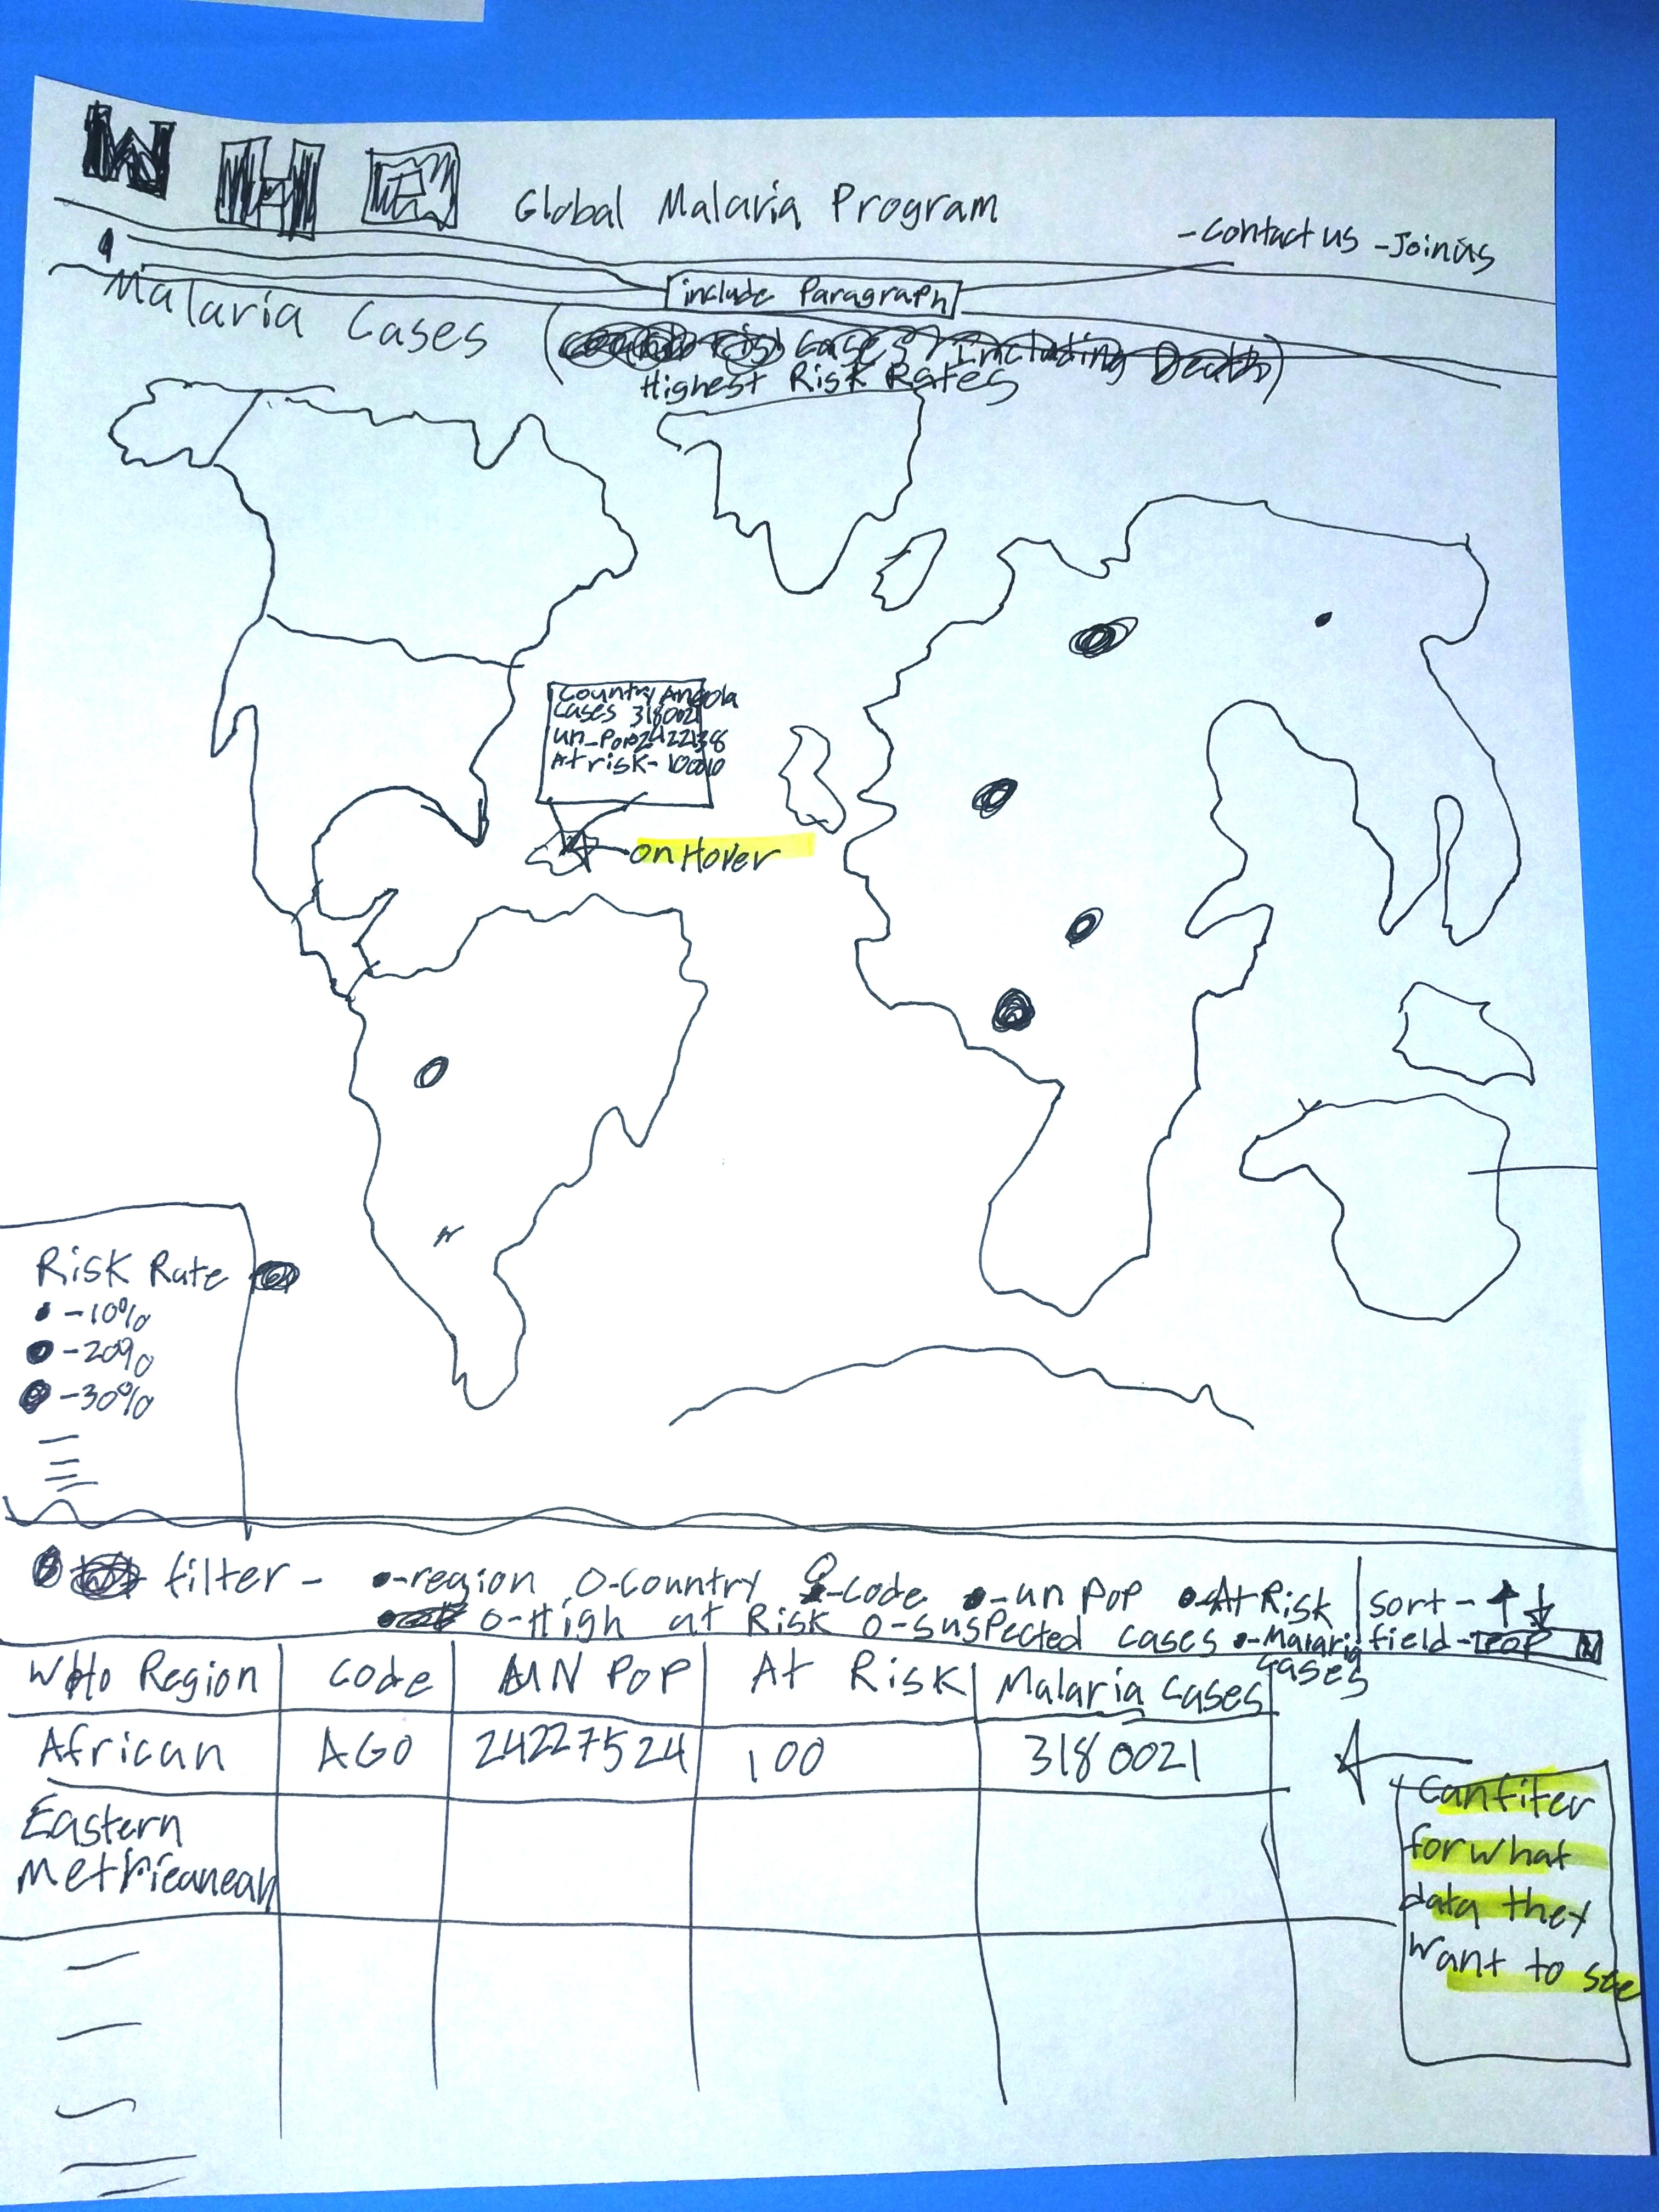 W H O Global Malaria Program
-Contact us -Join us
include Paragraph
Malaria Cases (
risk cases / Including Death)
Highest Risk Rates
Country Angola
Cases 3180021
un_Pop
At risk-
on Hover
Risk Rate
-10%
-20%
-30%
filter - -region O-Country -code -un pop -At Risk | sort-
O-High at Risk O-suspected cases -Malaria field- POP
cases
WHO Region Code UN POP At Risk Malaria Cases
African AGO 24227524 100 3180021
Eastern
Can fiter
for what
data they
want to see